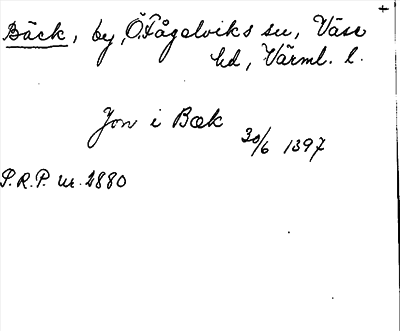 Bäck, by, Ö. Fågelviks sn, Väse
hd, Värml. l.
Jon i Bæk
30/6 1397
P.R.P. nr. 2880